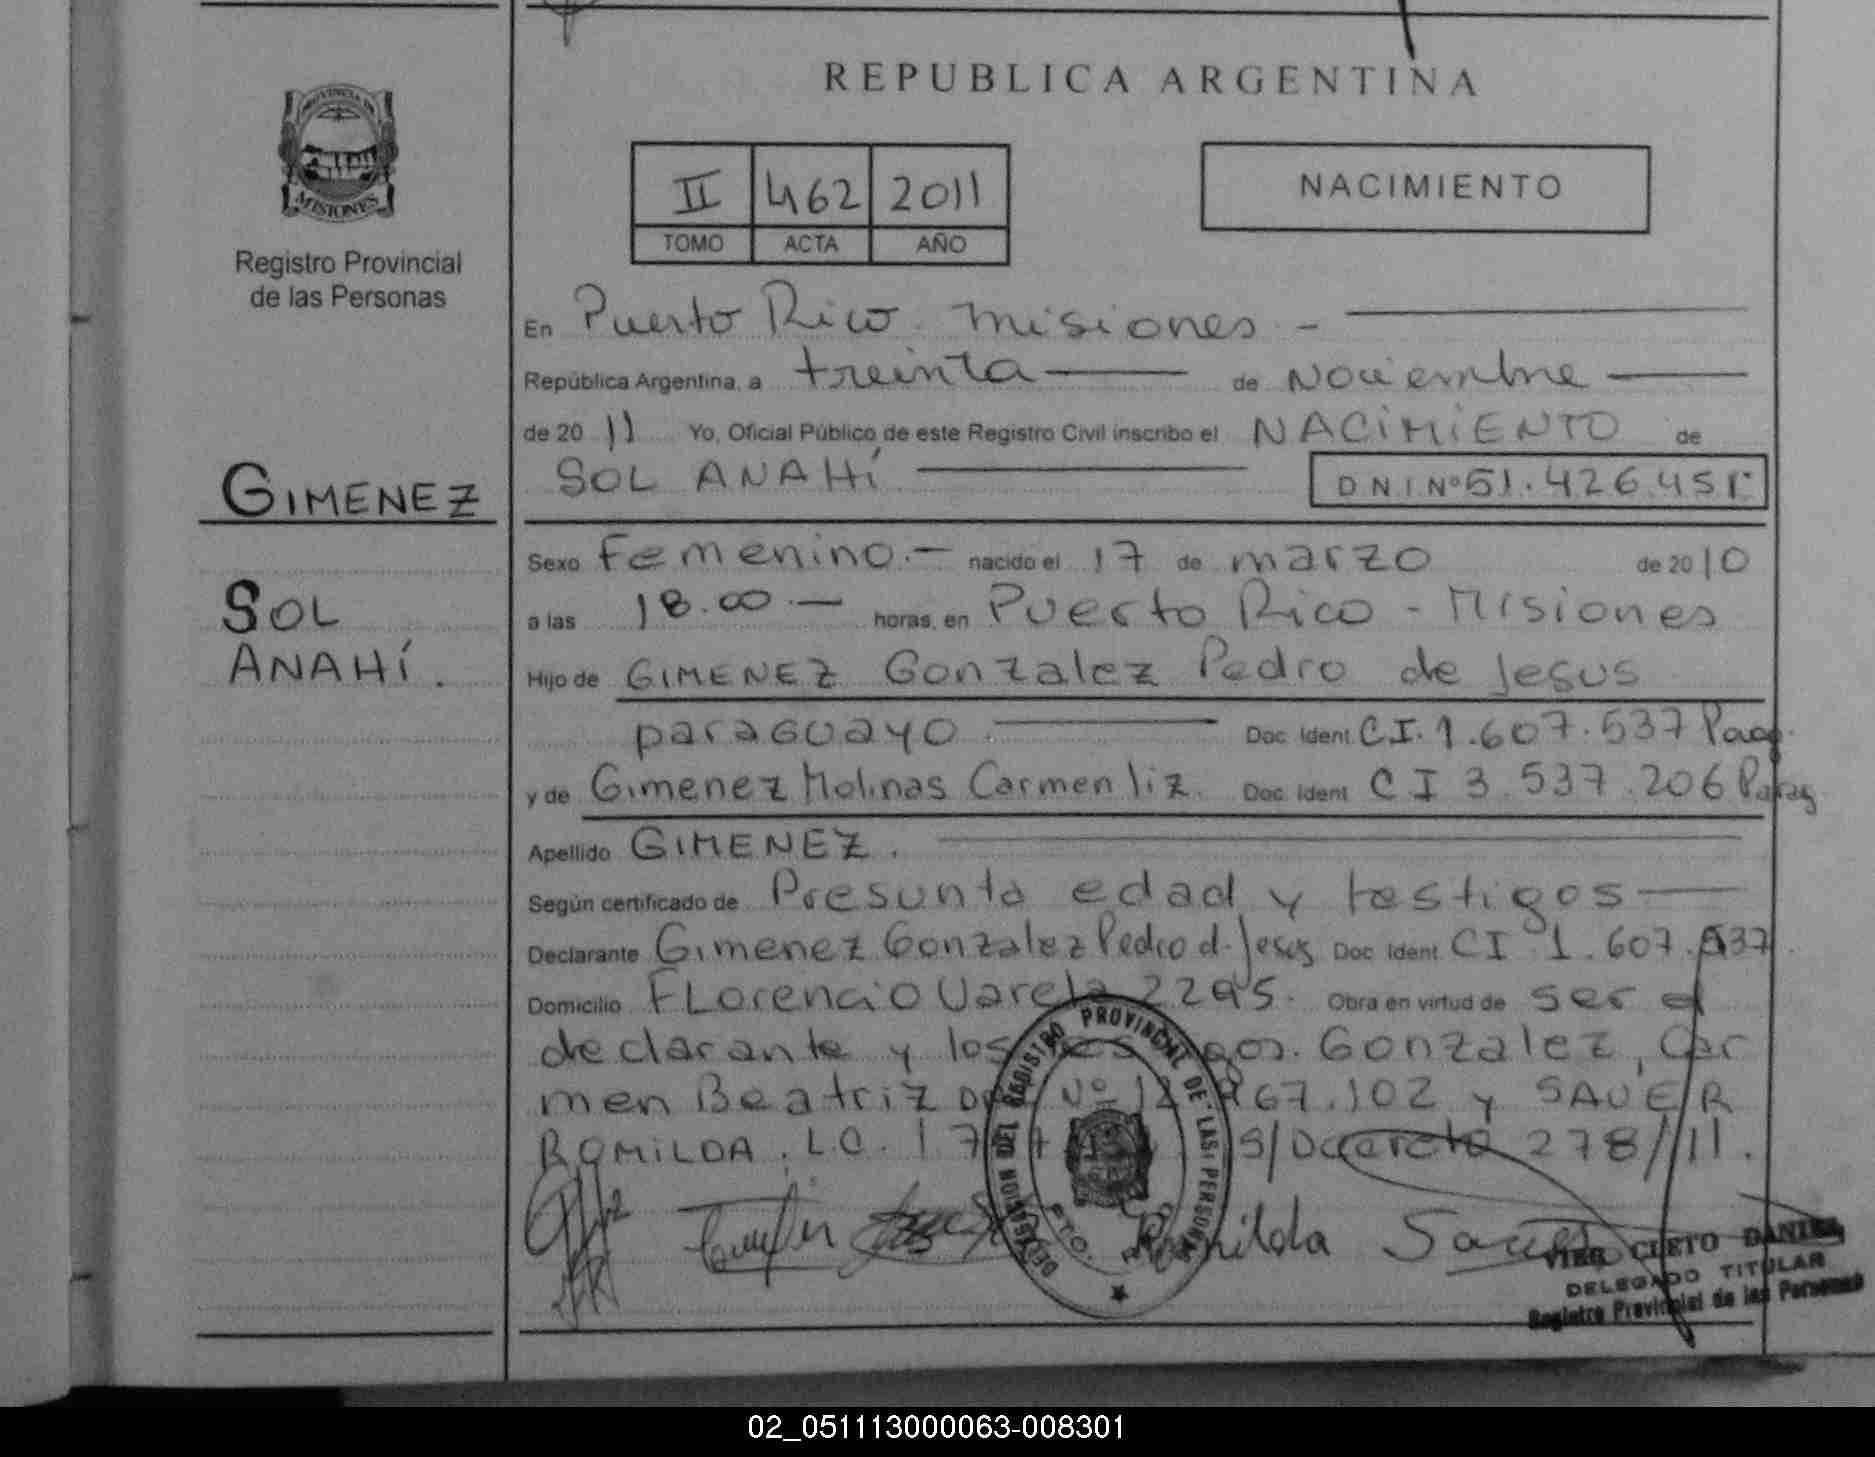 PROVINCIA DE
MISIONES
Registro Provincial
de las Personas
GIMENEZ
SOL
ANAHÍ.
REPUBLICA ARGENTINA
II 462 2011
TOMO ACTA AÑO
NACIMIENTO
En Puerto Rico. Misiones -
República Argentina, a treinta de Noviembre
de 2011 Yo, Oficial Público de este Registro Civil inscribo el NACIMIENTO de
SOL ANAHÍ DNI Nº 51.426.451
Sexo Femenino.- nacido el 17 de marzo de 2010
a las 18.00.- horas, en Puerto Rico - Misiones
Hijo de GIMENEZ Gonzalez Pedro de Jesus
paraguayo Doc. Ident. C.I. 1.607.537 Parag.
y de Gimenez Molinas Carmen liz. Doc. Ident. CI 3.537.206 Parag
Apellido GIMENEZ.
Según certificado de Presunta edad y testigos
Declarante Gimenez Gonzalez Pedro d. Jesus Doc. Ident. CI 1.607.537
Domicilio Florencio Varela 2295. Obra en virtud de ser el
declarante y los Gonzalez, Car
men Beatriz Nº 67.102 y SAUER
ROMILDA. L.C. 1.7 S/Decreto 278/11.
Romilda Sauer
DELEGACION DEL REGISTRO PROVINCIAL DE LAS PERSONAS
PTO. RICO
VIER CLETO DANIEL
DELEGADO TITULAR
Registro Provincial de las Personas
02_051113000063-008301